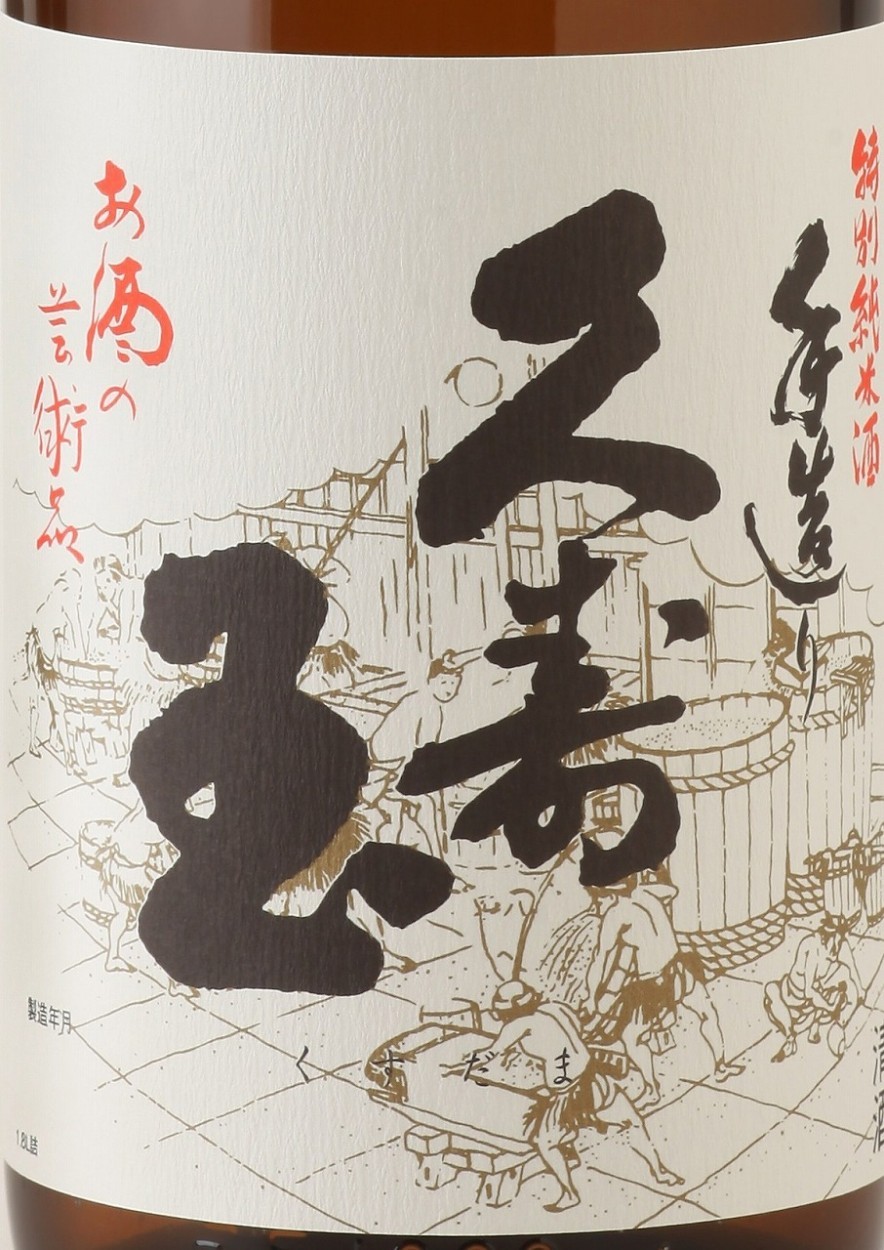 特別純米酒
手造り
久寿玉
お酒の
芸術品
くすだま
製造年月
1.8L詰
清酒